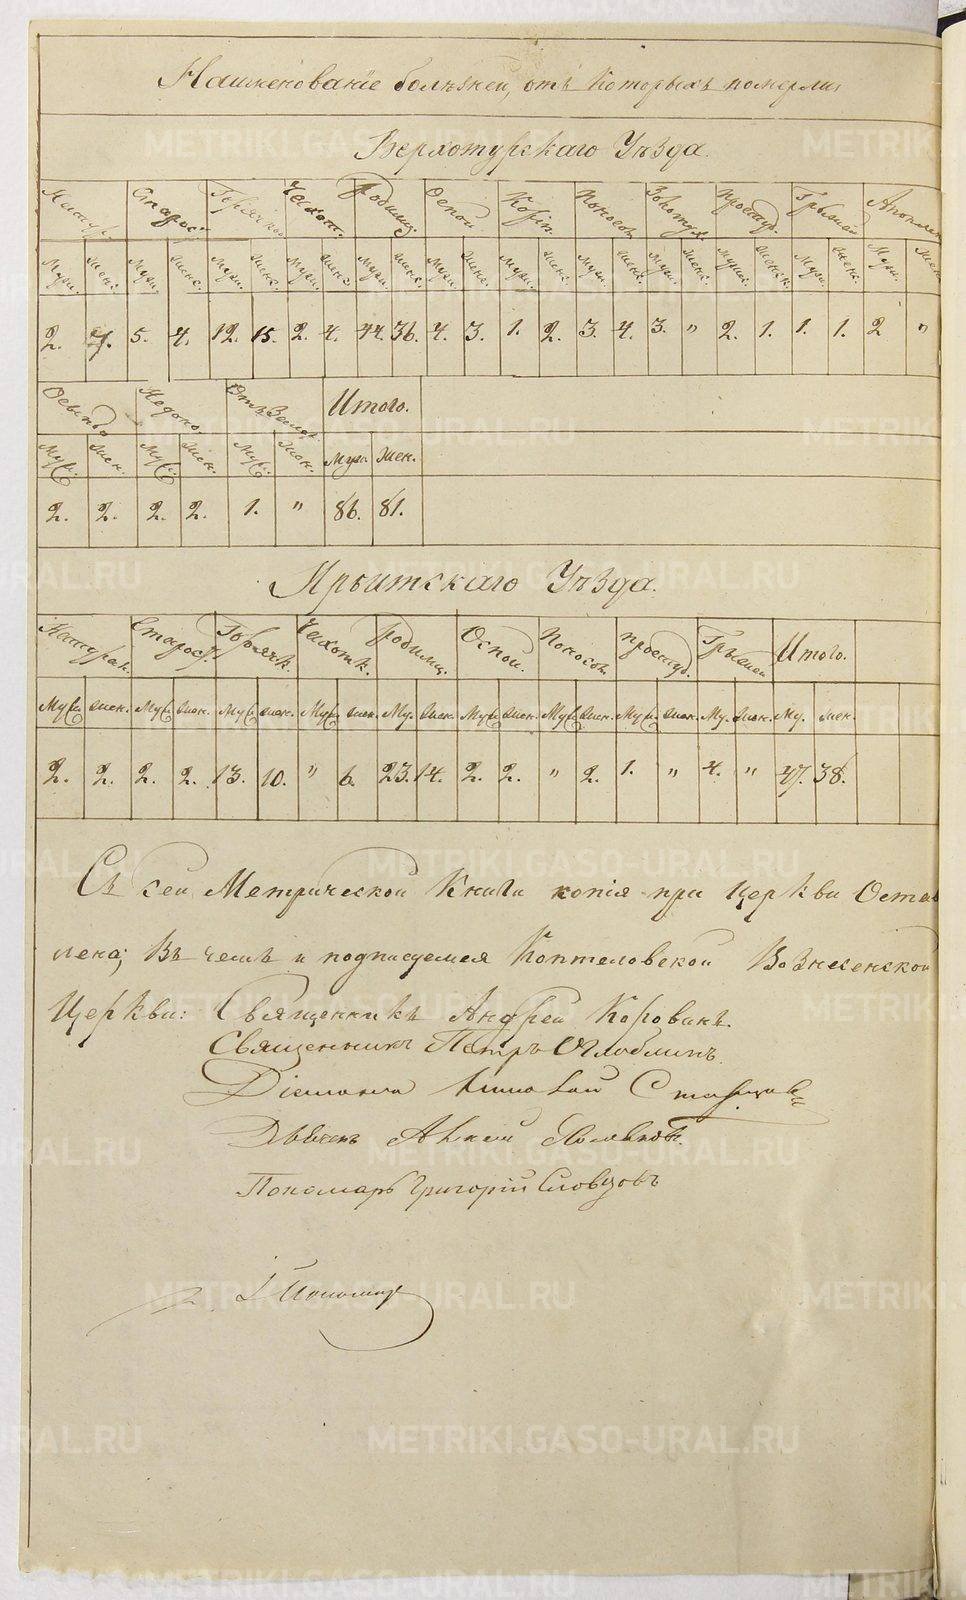 Наименованіе болѣзней, отъ которыхъ померли
Верхотурскаго Уѣзда.
Старос. Горячко. Чахот. Родимц. Оспой. Корію. Поносом. Золотух. Простуд. Грыжей
Муж. Женс. Муж. Женс. Муж. Женс. Муж. Женс. Муж. Женс. Муж. Женс. Муж. Женс. Муж. Женс. Муж. Женс. Муж. Женс. Муж. Женс. Муж. Жен.
2. 7. 5. 4. 12. 15. 2. 4. 44. 36. 4. 3. 1. 2. 3. 4. 3. „ 2. 1. 1. 1. 2 „
Итого.
Муж. Жен. Муж. Жен. Муж. Жен. Муж. Жен.
2. 2. 2. 2. 1. „ 86. 81.
Ирбитскаго Уѣзда.
Старост. Горячк. Чахотк. Родимц. Оспой. Поносом. Простуд. Грыжей Итого.
Муж. Жен. Муж. Жен. Муж. Жен. Муж. Жен. Му. Жен. Муж. Жен. Муж. Жен. Муж. Жен. Му. Жен. Му. Жен.
2. 2. 2. 2. 13. 10. „ 6. 23. 14. 2. 2. „ 2. 1. „ 4. „ 47. 38.
Съ сей Метрической Книги копія при Церкви Остав
лена; Въ чемъ и подписуемся Коптеловской Вознесенской
Церкви: Священникъ Андрей Коровинъ.
Священникъ Петръ
Діаконъ
Дьячекъ
Пономарь Григорій Словцовъ
METRIKI.GASO-URAL.RU